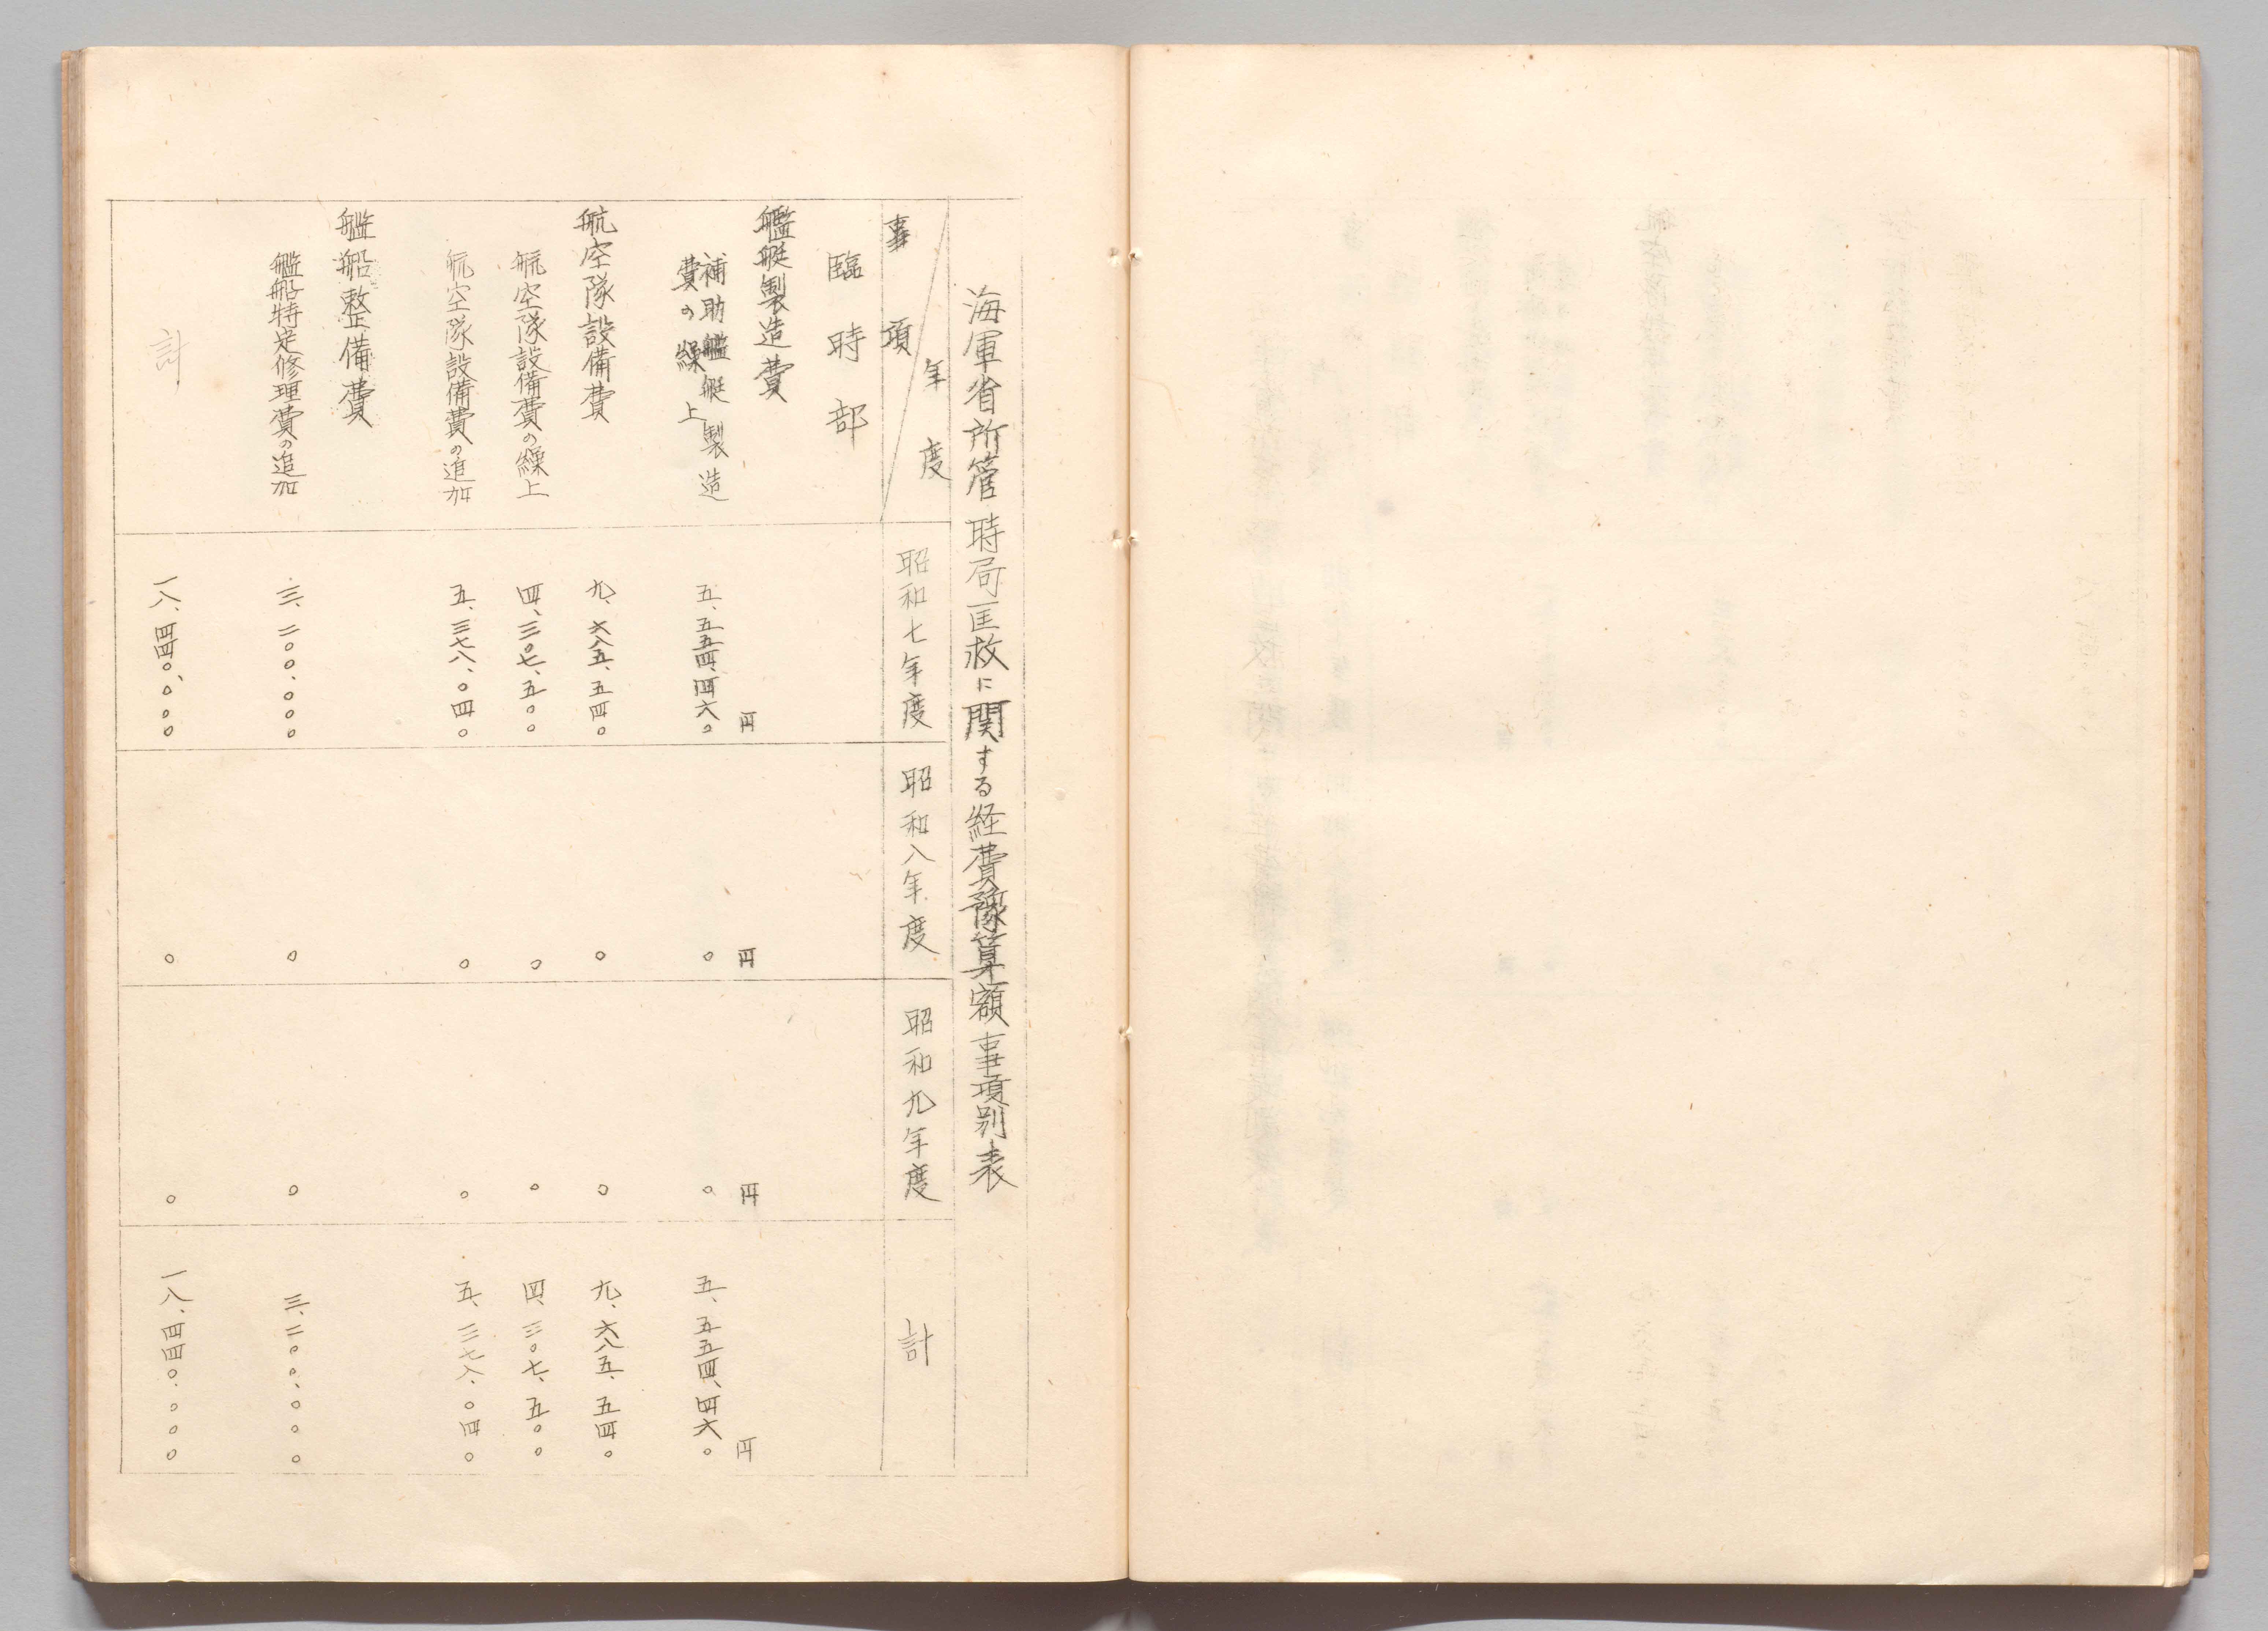 海軍省所管時局匡救に関する経費豫算額事項別表
事項
年度
昭和七年度
昭和八年度
昭和九年度
計
臨時部
艦艇製造費
円
円
円
円
補助艦艇製造
費の繰上
五、五五四、四六〇
〇
〇
五、五五四、四六〇
航空隊設備費
九、六八五、五四〇
〇
〇
九、六八五、五四〇
航空隊設備費の繰上
四、三〇七、五〇〇
〇
〇
四、三〇七、五〇〇
航空隊設備費の追加
五、三七八、〇四〇
〇
〇
五、三七八、〇四〇
艦船整備費
艦船特定修理費の追加
三、二〇〇、〇〇〇
〇
〇
三、二〇〇、〇〇〇
計
一八、四四〇、〇〇〇
〇
〇
一八、四四〇、〇〇〇